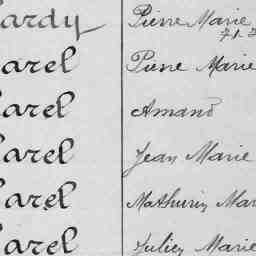 ardy Pierre Marie
arel Pierre Marie
arel Amand
arel Jean Marie
arel Mathurin Mar
arel Julien Marie